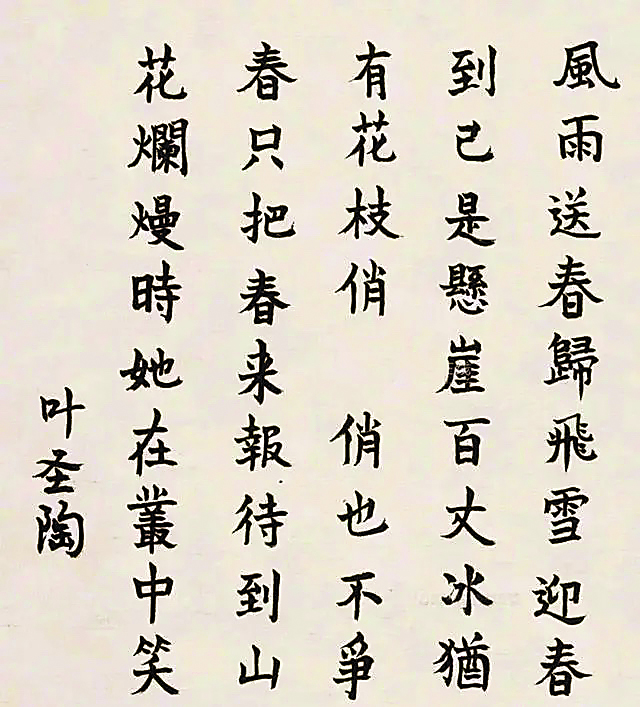 風雨送春歸飛雪迎春
到已是懸崖百丈冰猶
有花枝俏　俏也不爭
春只把春来報待到山
花爛熳時她在叢中笑
叶圣陶